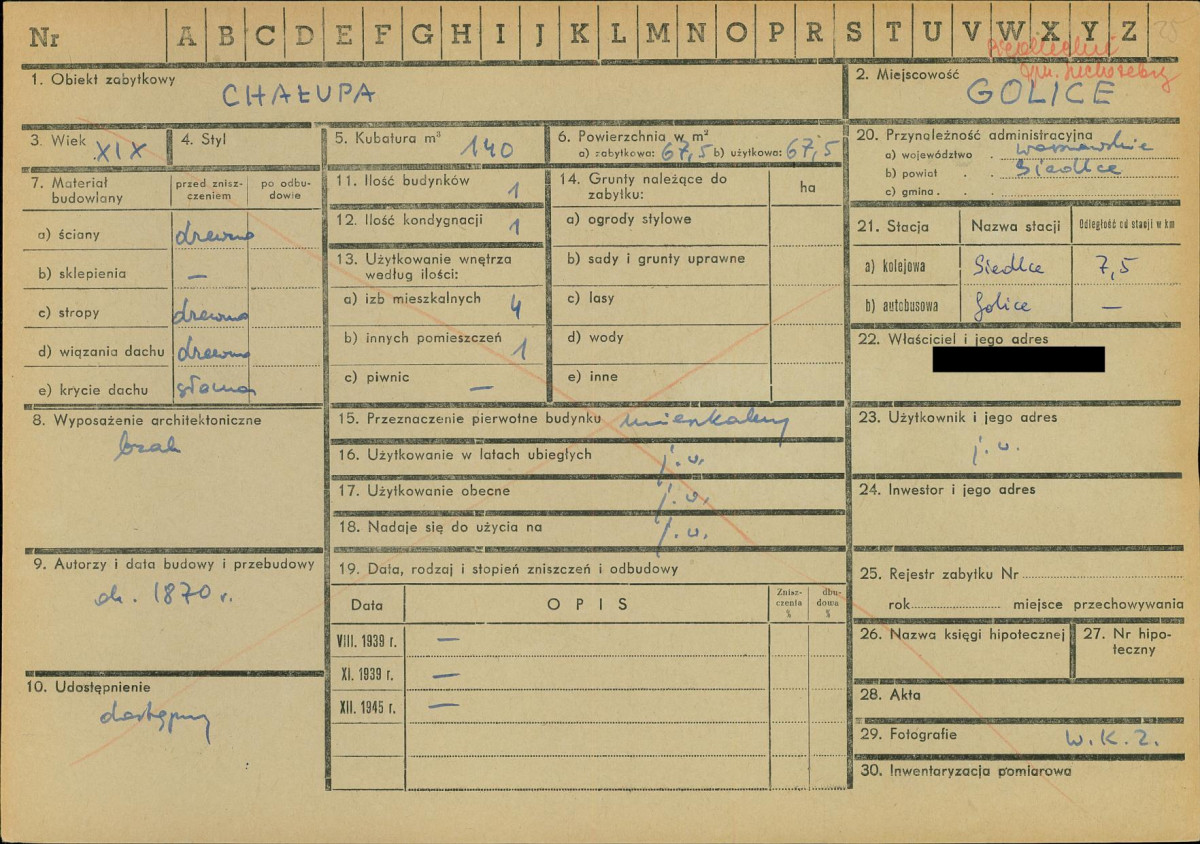 Nr A B C D E F G H I J K L M N O P R S T U V W X Y Z 25
gm. Suchożebry
1. Obiekt zabytkowy
CHAŁUPA
2. Miejscowość
GOLICE
3. Wiek XIX
4. Styl
5. Kubatura m³ 140
6. Powierzchnia w m²
a) zabytkowa: 67,5 b) użytkowa: 67,5
7. Materiał budowlany
przed zniszczeniem
po odbudowie
a) ściany drewno
b) sklepienia —
c) stropy drewno
d) wiązania dachu drewno
e) krycie dachu słoma
8. Wyposażenie architektoniczne
brak
9. Autorzy i data budowy i przebudowy
ok. 1870 r.
10. Udostępnienie
dostępny
11. Ilość budynków 1
12. Ilość kondygnacji 1
13. Użytkowanie wnętrza
według ilości:
a) izb mieszkalnych 4
b) innych pomieszczeń 1
c) piwnic —
14. Grunty należące do
zabytku:
ha
a) ogrody stylowe
b) sady i grunty uprawne
c) lasy
d) wody
e) inne
15. Przeznaczenie pierwotne budynku mieszkalny
16. Użytkowanie w latach ubiegłych j.w.
17. Użytkowanie obecne j.w.
18. Nadaje się do użycia na j.w.
19. Data, rodzaj i stopień zniszczeń i odbudowy
Data
OPIS
Zniszczenia %
dbudowa %
VIII. 1939 r. —
XI. 1939 r. —
XII. 1945 r. —
20. Przynależność administracyjna
a) województwo . warszawskie
b) powiat . . Siedlce
c) gmina . .
21. Stacja
Nazwa stacji
Odległość od stacji w km
a) kolejowa Siedlce 7,5
b) autobusowa Golice —
22. Właściciel i jego adres
23. Użytkownik i jego adres
j.w.
24. Inwestor i jego adres
25. Rejestr zabytku Nr
rok miejsce przechowywania
26. Nazwa księgi hipotecznej
27. Nr hipoteczny
28. Akta
29. Fotografie W.K.Z.
30. Inwentaryzacja pomiarowa